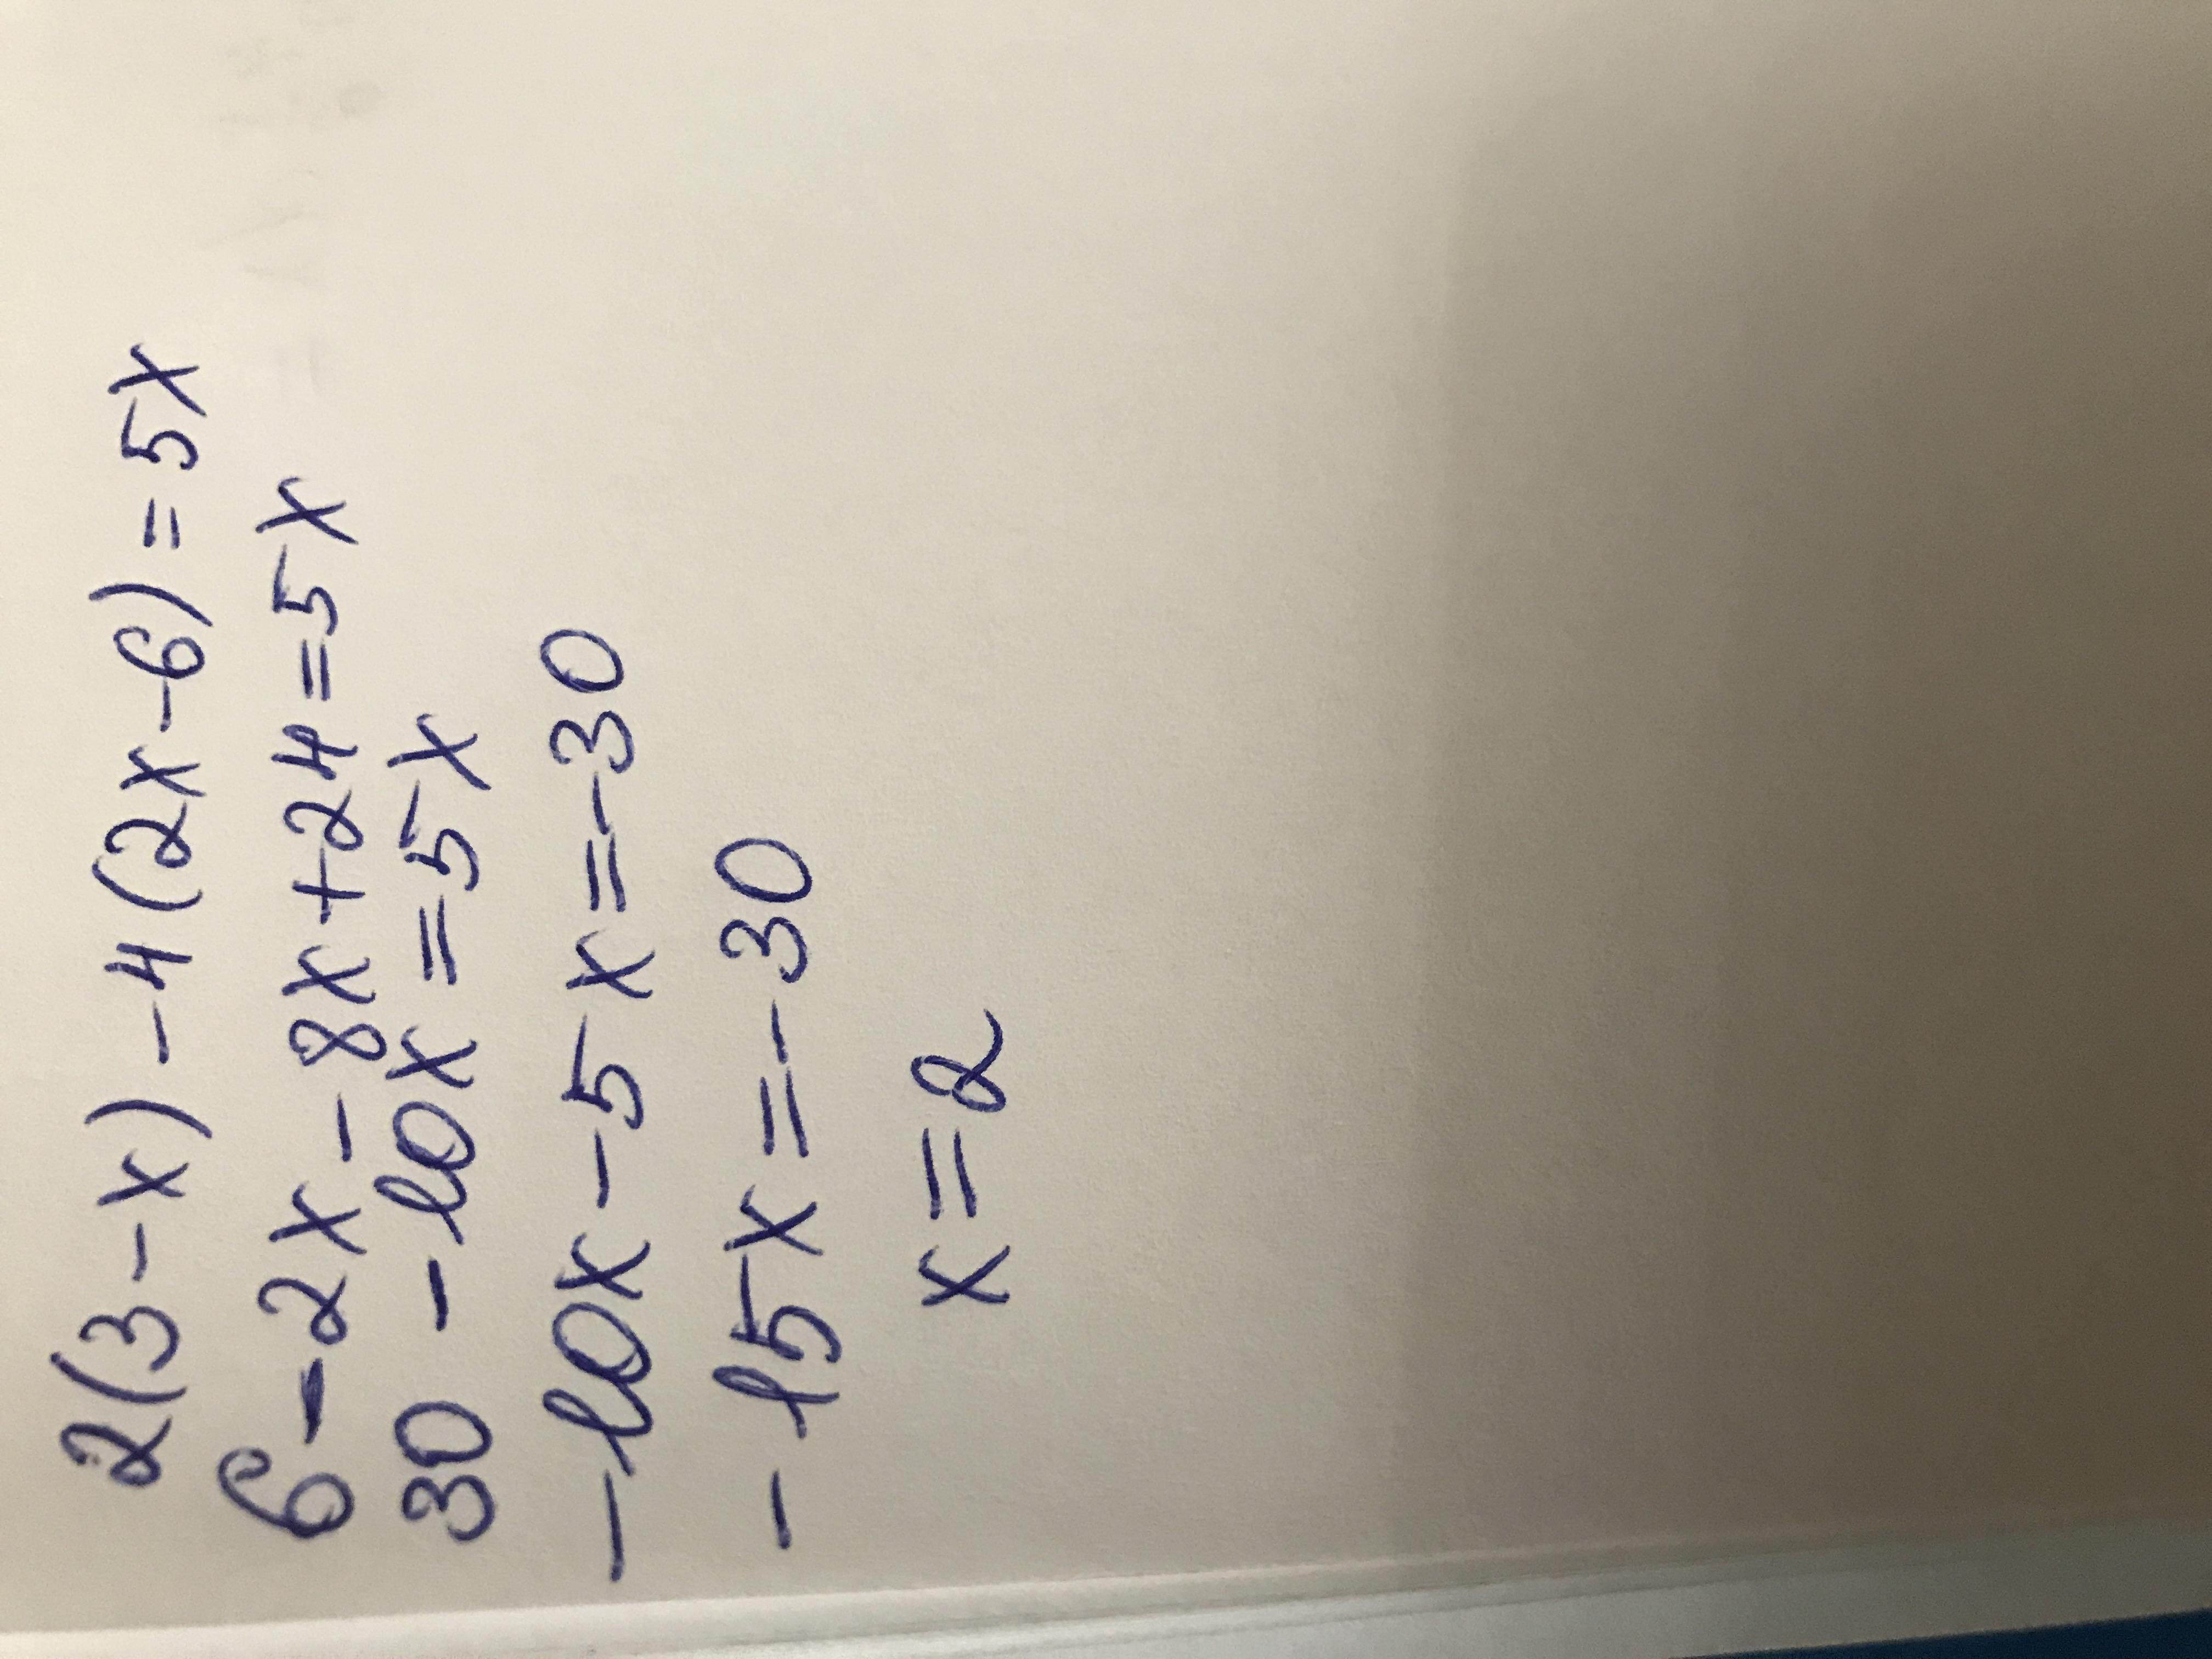 2(3-x)-4(2x-6)=5x
6-2x-8x+24=5x
30-10x=5x
-10x-5x=-30
-15x=-30
x=2